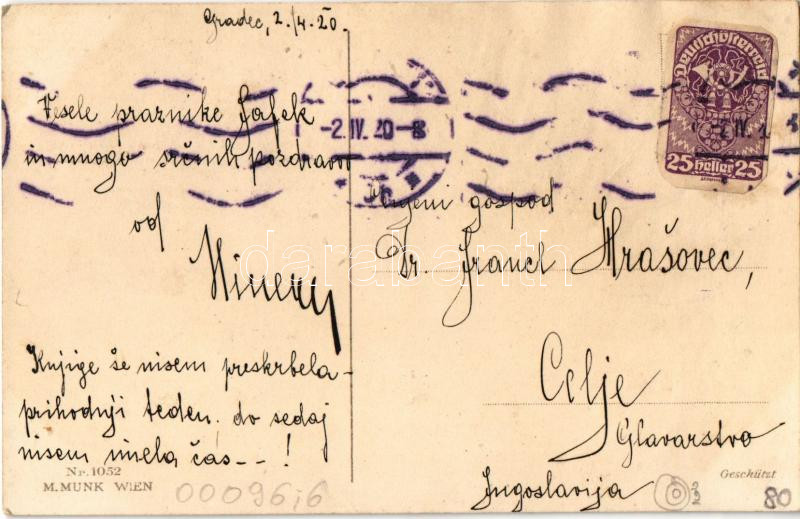 Gradec, 2./4. 20.
Vesele praznike Jajek
in mnogo srčnih pozdravov
od
Knjige še nisem preskrbela –
prihodnji teden, do sedaj
nisem imela čas – – !
Nr. 1052
M. MUNK WIEN
Deutschösterreich
25 Heller 25
-2.IV.20-8
gospod
Dr. Franel Hrašovec,
Celje
Glavarstvo
Jugoslavija
Geschützt
80
darabanth